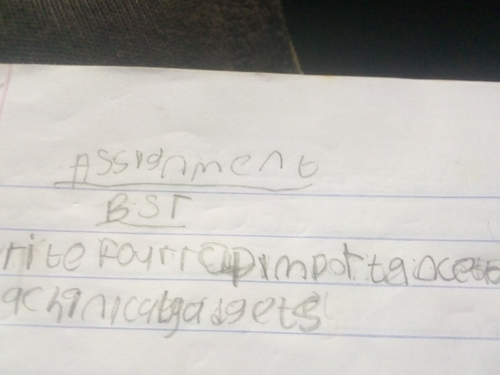 Assignment
BST
rite Four (4) importance to
achinical gadgets